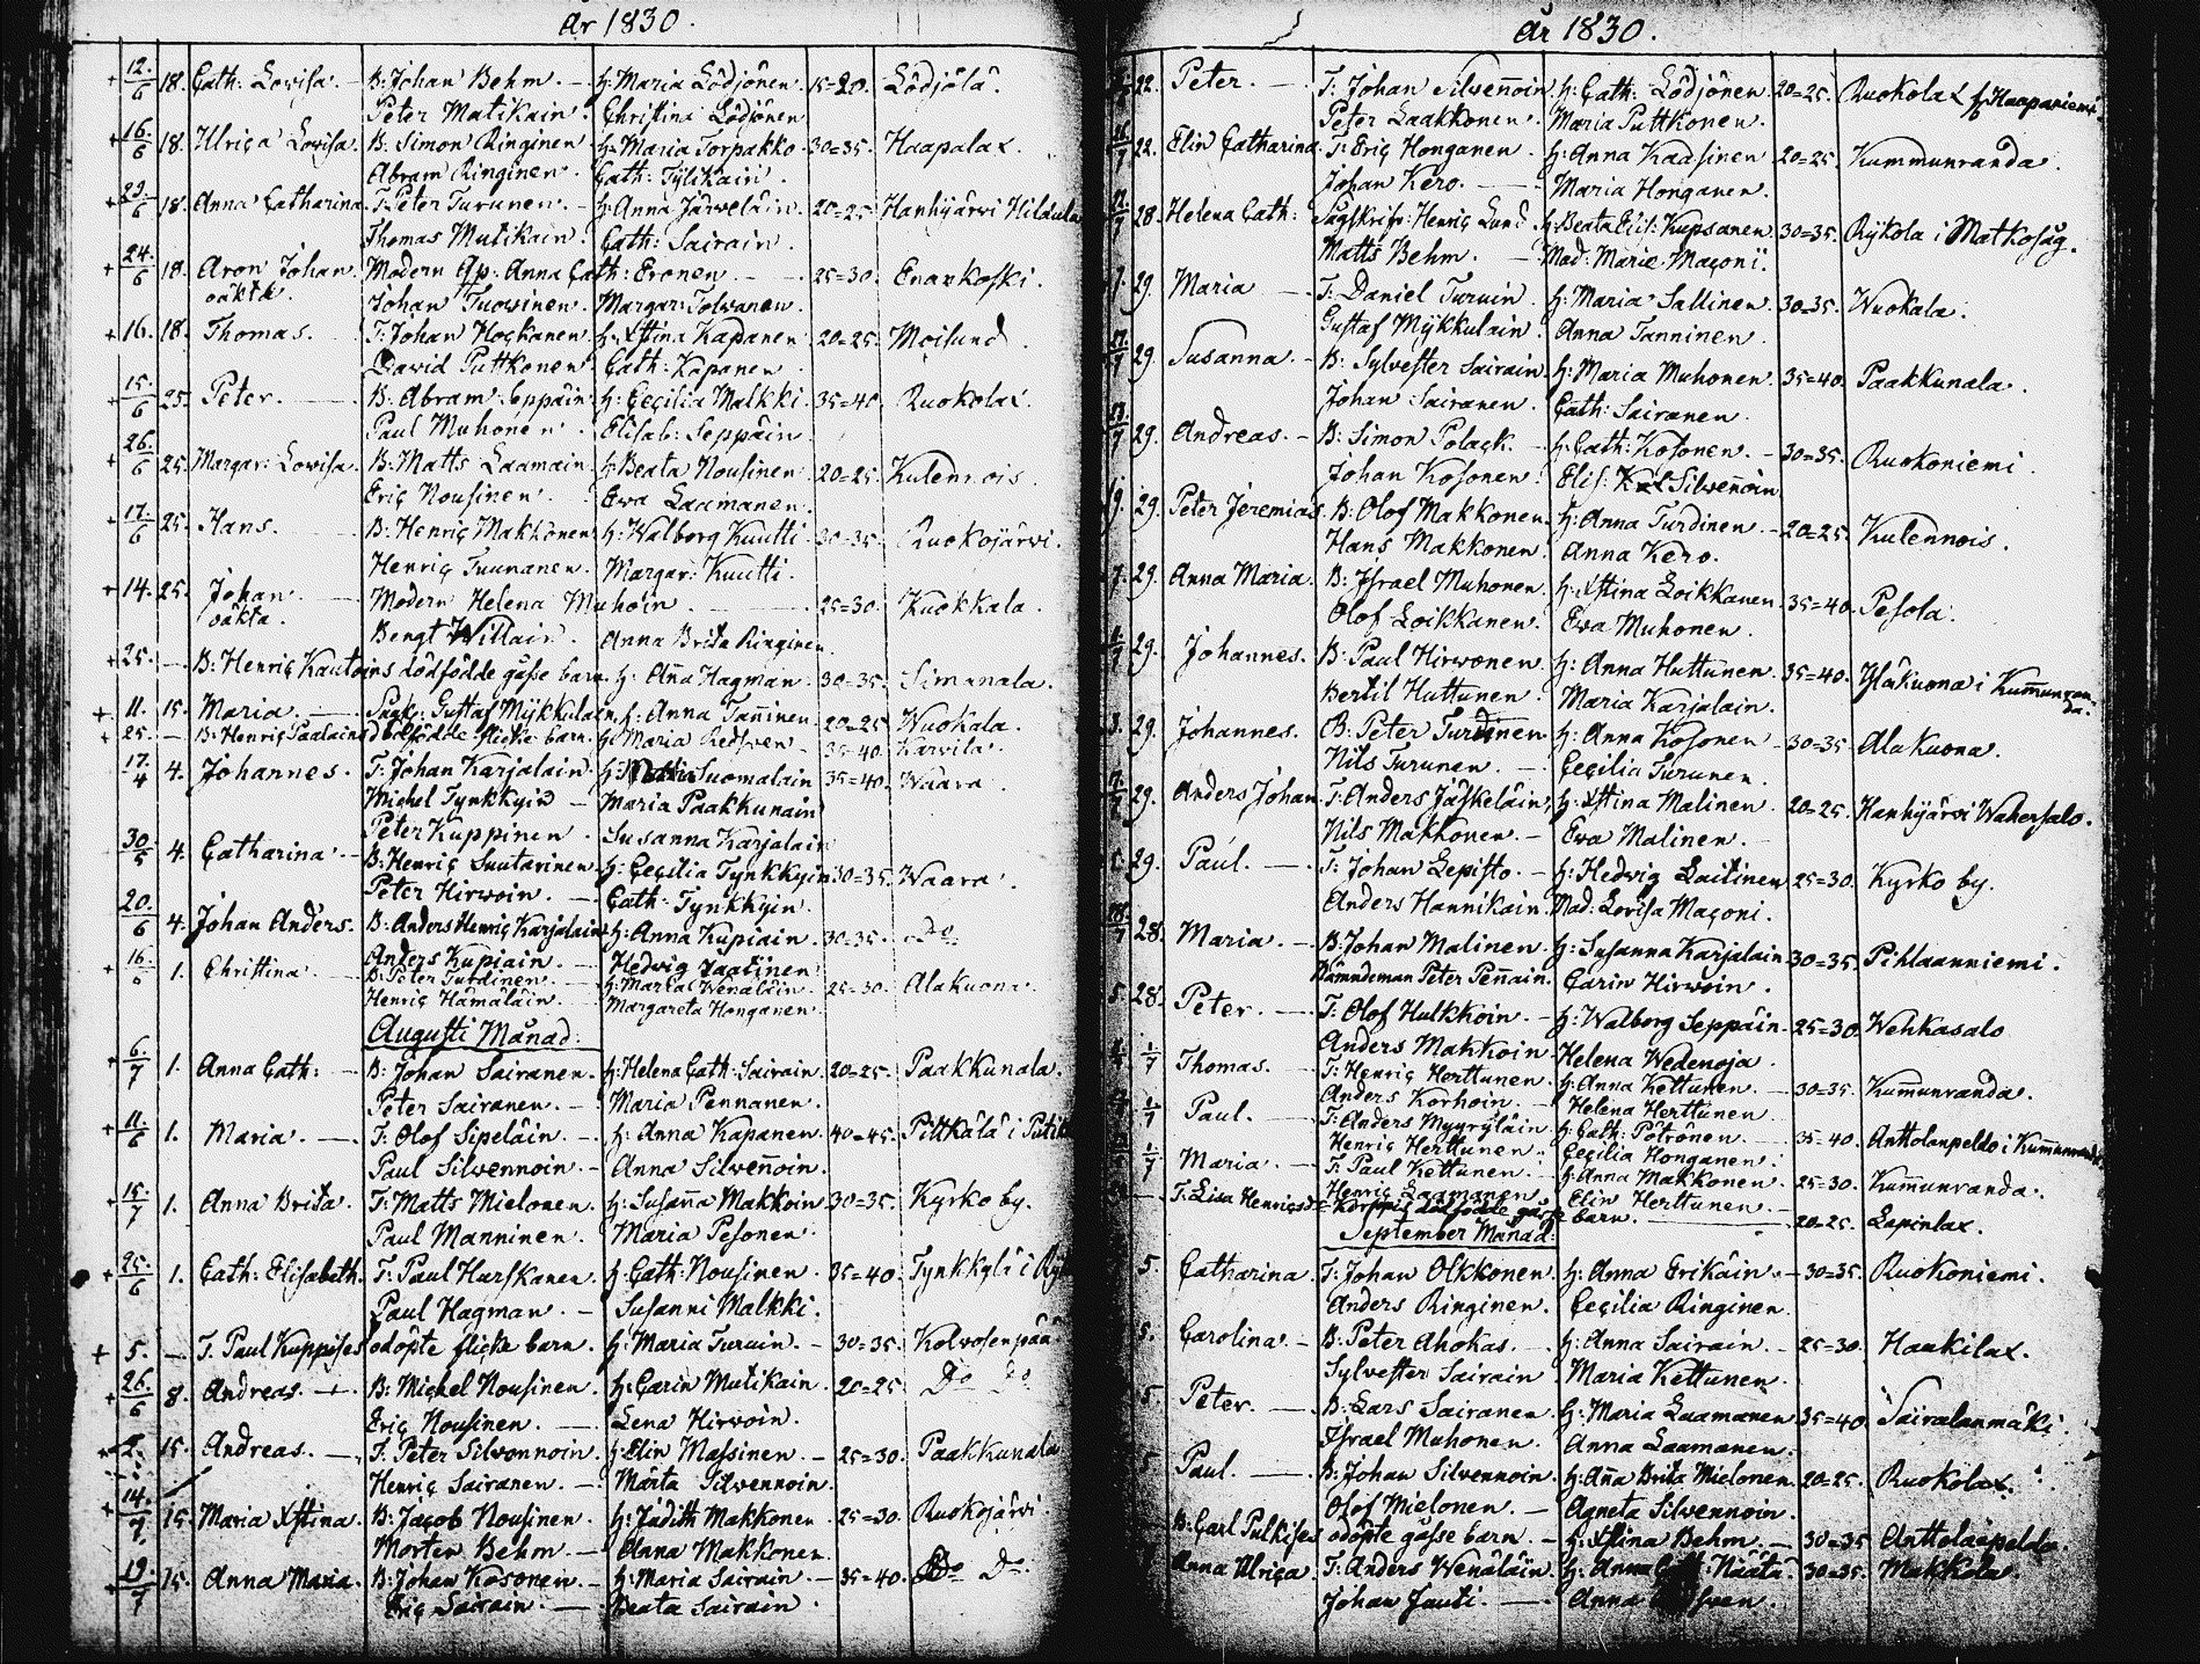 år 1830.
+ 12./6 18. Cath: Lovisa. — B: Johan Behm. — H: Maria Lödjönen. 15=20. Lödjölä.
Peter Matikain. Christina Lödjönen
+ 16./6 18. Ulrica Lovisa. B: Simon Ringinen H: Maria Torpakko. 30=35. Haapalax.
Abram Ringinen. Cath: Tylikain.
+ 29./6 18. Anna Catharina. T: Peter Turunen. — H: Anna Järveläin. 20=25. Hanhijärwi
Thomas Mutikain. Cath: Sairain.
+ 24./6 18. Aron Johan. Modern Anna Cath: Eronen — 25=30. Enankoski.
oäkta. Johan Tuowinen. Margar: Tolwanen.
+ 16. 18. Thomas. T: Johan Hockanen H: Xstina Kapanen 20=25. Moilund.
David Puttkonen. Cath: Kapanen
+ 15./6 25. Peter. — B: Abram Seppäin. H: Cecilia Malkki. 35=40. Ruokolax.
Paul Muhonen. Elisab: Seppäin.
+ 26./6 25. Margar: Lovisa. B: Matts Laamain. H: Beata Nousinen. 20=25. Kulennois.
Eric Nousinen. Ewa Laamanen.
+ 17./6 25. Hans. B: Henric Makkonen H: Walborg Kuutti. 30=35. Ruokojärwi.
Henric Tuunanen. Margar: Kuutti.
+ 14. 25. Johan. — Modern Helena Muhoin. — 25=30. Kuokkala.
oäkta. Bengt Willain. Anna Brita Ringinen.
+ 25. — B: Henric Kautoins dödfödde gåsse barn. H: Aña Hagman. 30=35. Simanala.
+ 11. 15. Maria. — Gustaf Mykkulain, H: Anna Tañinen. 20=25 Wuokala.
+ 25. — B: Henric Paalains dödfödde flicke barn. H: Maria Redsven — 35=40. Karvila.
17./4 4. Johannes. T: Johan Karjalain. H: Suomalain 35=40. Waara.
Michel Tynkkyin — Maria Paakkunain
Peter Kuppinen. Susanna Karjalain
30./5 4. Catharina. — B: Henric Suutarinen. H: Cecilia Tynkkyin 30=35. Waara.
Peter Hirwoin. — Cath: Tynkkyin.
20./6 4. Johan Anders. B: Anders Henric Karjalain. H: Anna Kupiain. 30=35. Do
Anders Kupiain. — Hedwig Laatinen
+ 16. 1. Christina. — B: Peter Turdinen. H: Maria Wenäläin. 25=30. Alakuona.
Henric Hämäläin. Margareta Honganen.
Augusti Månad.
+ 6./7 1. Anna Cath: — B: Johan Sairanen. H: Helena Cath: Sairain. 20=25. Paakkunala.
Peter Sairanen. — Maria Pennanen.
+ 11./6 1. Maria. — T: Olof Sipeläin. — H: Anna Kapanen. 40=45. Pittkälä i
Paul Silvennoin. — Anna Silveñoin.
+ 15./7 1. Anna Brita. T: Matts Mielonen. H: Susaña Makkoin 30=35. Kyrko by.
Paul Manninen. Maria Pesonen.
+ 25./6 1. Cath: Elisabeth. T: Paul Hurskanen. H: Cath: Nousinen. 35=40. Tynkkylä i
Paul Hagman. — Susanni Malkki.
+ 5. — T. Paul Kuppises odöpte flicke barn. H: Maria Turuin. — 30=35. Kolvosenpää
+ 26./6 8. Andreas. — B: Michel Nousinen. H: Carin Mutikain. 20=25. Do Do
Eric Nousinen. — Lena Hirwoin.
+ 2. 15. Andreas. — T. Peter Silvennoin. H: Elin Massinen. — 25=30. Paakkunala
Henric Sairanen. — Märta Silwennoin.
+ 14./7. 15. Maria Xstina. B: Jacob Nousinen. H: Judith Makkonen. 25=30. Ruokojärwi.
Morten Behm. — Anna Makkonen.
+ 19./7 15. Anna Maria. B: Johan Kosonen. — H: Maria Sairain. — 35=40. Do Do.
Eric Sairain. — Beata Sairain.
år 1830.
22. Peter. — T: Johan Silveñoin H: Cath: Lödjönen. 20=25. Ruokolax Haapaniemi
Peter Laakkonen. Maria Puttkonen.
22. Elin Catharina. T: Eric Honganen. H: Anna Kaasinen 20=25. Kummunranda.
Johan Kero. — Maria Honganen.
28. Helena Cath: Henric Lund H: Beata Kupsanen 30=35. Rykola i Matkosåg.
Matts Behm. — Mad: Marie Maconi.
29. Maria — T: Daniel Turuin. H: Maria Sallinen 30=35. Wuokala.
Gustaf Mykkulain. Anna Tanninen.
29. Susanna. — B: Sylvester Sairain. H: Maria Muhonen. 35=40. Paakkunala.
Johan Sairanen. Cath: Sairanen.
29. Andreas. — B: Simon Polack. — H: Cath: Kosonen. — 30=35. Ruokoniemi.
Johan Kosonen. Elis: Silveñoin
29. Peter Jeremias. B: Olof Makkonen. H: Anna Turdinen. — 20=25. Kulennois.
Hans Makkonen. Anna Kero.
7. 29. Anna Maria. B: Israel Muhonen. H: Xstina Loikkanen. 35=40. Pesola.
Olof Loikkanen. Ewa Muhonen.
29. Johannes. B: Paul Hirwonen. H: Anna Huttunen. 35=40. Yläkuona i Kum̃unranda.
Bertil Huttunen. Maria Karjalain.
3. 29. Johannes. B: Peter Turdinen H: Anna Kosonen — 30=35. Ala Kuona.
Nils Turunen. — Cecilia Turunen.
29. Anders Johan. T: Anders Jäskeläin, H: Xstina Malinen. 20=25. Hanhijärwi Wahersalo.
Nils Makkonen. — Ewa Malinen. —
29. Paul. — T: Johan Lepisto. — H: Hedvig Laitinen 25=30. Kyrko by.
Anders Hannikain. Mad: Lovisa Maconi.
28. Maria. — B: Johan Malinen. H: Susanna Karjalain 30=35. Pihlaanniemi.
Nämndeman Peter Peñain. Carin Hirwoin.
5. 28. Peter. — T: Olof Hulkkoin. — H: Walborg Seppäin. 25=30. Wehkasalo
Anders Makkoin. Helena Wedenoja.
1/7 Thomas. T: Henric Herttunen. H: Anna Kettunen. — 30=35. Kum̃unranda.
Anders Korhoin. Helena Herttunen
1/7 Paul. — T: Anders Myyryläin. H: Cath: Pötrönen. — 35=40. Anttolanpeldo i Kum̃unranda.
Henric Herttunen. Cecilia Honganen.
1/7 Maria. — T: Paul Kettunen. H: Anna Makkonen. 25=30. Kum̃unranda.
Henric Laamanen Elin Herttunen. —
— T. Lisa Henricsd: Korppis dödfödde gåsse barn. — 20=25. Lapinlax.
September Månad:
5. Catharina. T: Johan Olkkonen. H: Anna Erikäin. — 30=35. Ruokoniemi.
Anders Ringinen. Cecilia Ringinen.
5. Carolina. — B: Peter Ahokas. — H: Anna Sairain. — 25=30. Haukilax.
Sylvester Sairain Maria Kettunen.
5. Peter. — B: Lars Sairanen. H: Maria Laamanen 35=40. Sairalanmäki.
Israel Muhonen. Anna Laamanen.
5 Paul. — B: Johan Silvennoin. H: Aña Brita Mielonen. 20=25. Ruokolax.
Olof Mielonen. — Agneta Silvennoin.
B: Carl Pulkises odöpte gåsse barn. — H: Xstina Behm. — 30=35 Anttolaspeldo.
Anna Ulrica. T: Anders Wenäläin. H: Anna Näätä. 30=35. Makkola.
Johan Jauti. — Anna